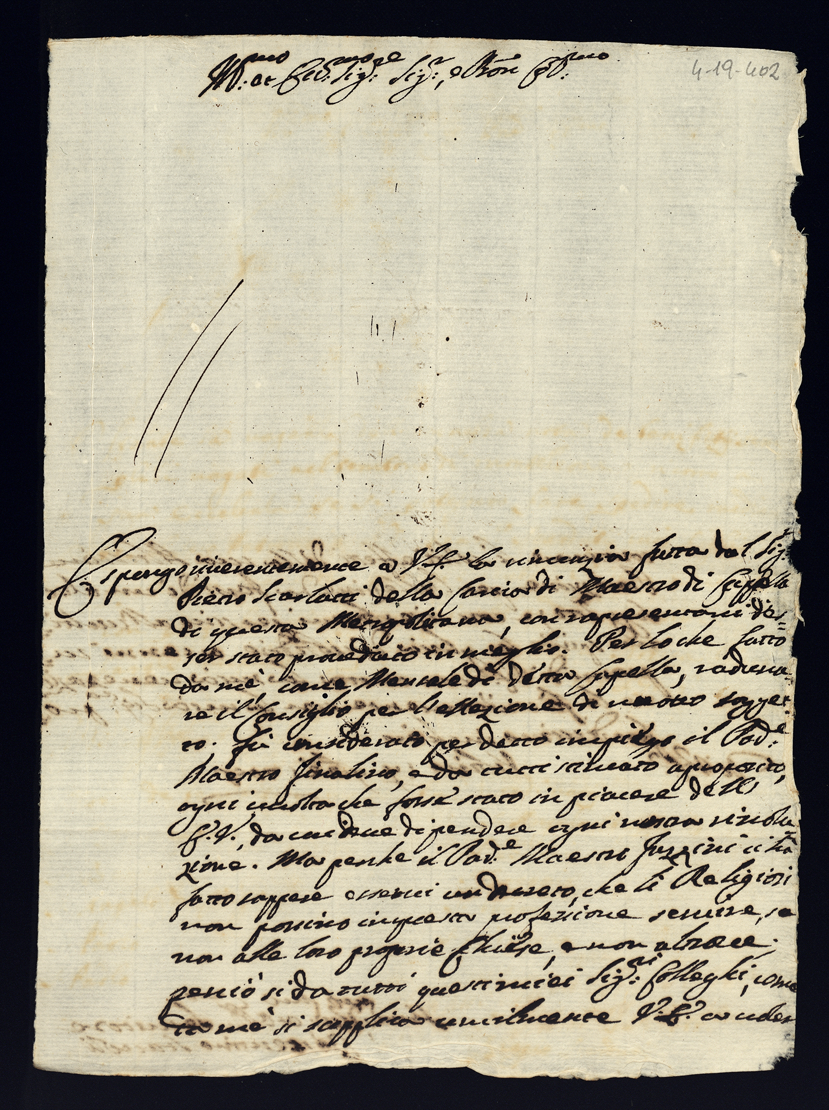 Ill.mo et Ecc.mo Sig.re Sig.r, e Pron Col.mo
4-19-402
Espongo riverentemente a V.E. la rinunzia fatta dal Sig.r
Pietro Scarlatti della Carica di Maestro di Cappella
di questa Metropolitana, con rapresentarvi d'es=
ser stato proveduto in meglio. Per lo che fatto
da me, come Mensale di detta Cappella, raduna
re il Consiglio per l'ellezione di nuovo sogget
to; fù considerato per detto impiego il Pad.e
Maestro Finalino, e da tutti stimato a proposito,
ogni qual volta che fosse stato in piacere dell'
E.V., da cui deve dipendere ogni nostra risolu
zione. Ma perche il Pad.e Maestro Fuzzini ci hà
fatto sappere esservi un decreto, che li Religiosi
non possino in questa professione servire, se
non alle loro proprie Chiese, e non altrove;
perciò si da tutti questi miei Sig.ri Colleghi, come
da me si supplica umilmente V.E. a